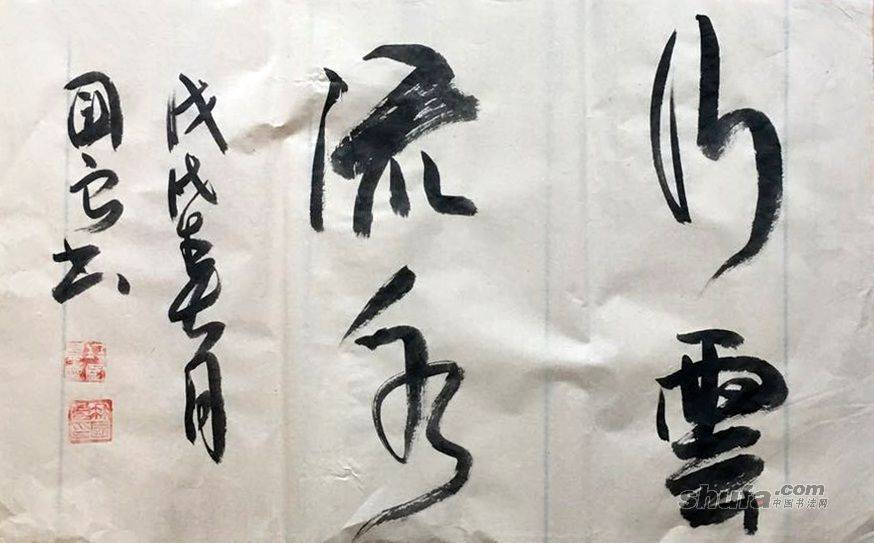 行雲
流水
戊戌春月
国安书
shufa.com
中国书法网